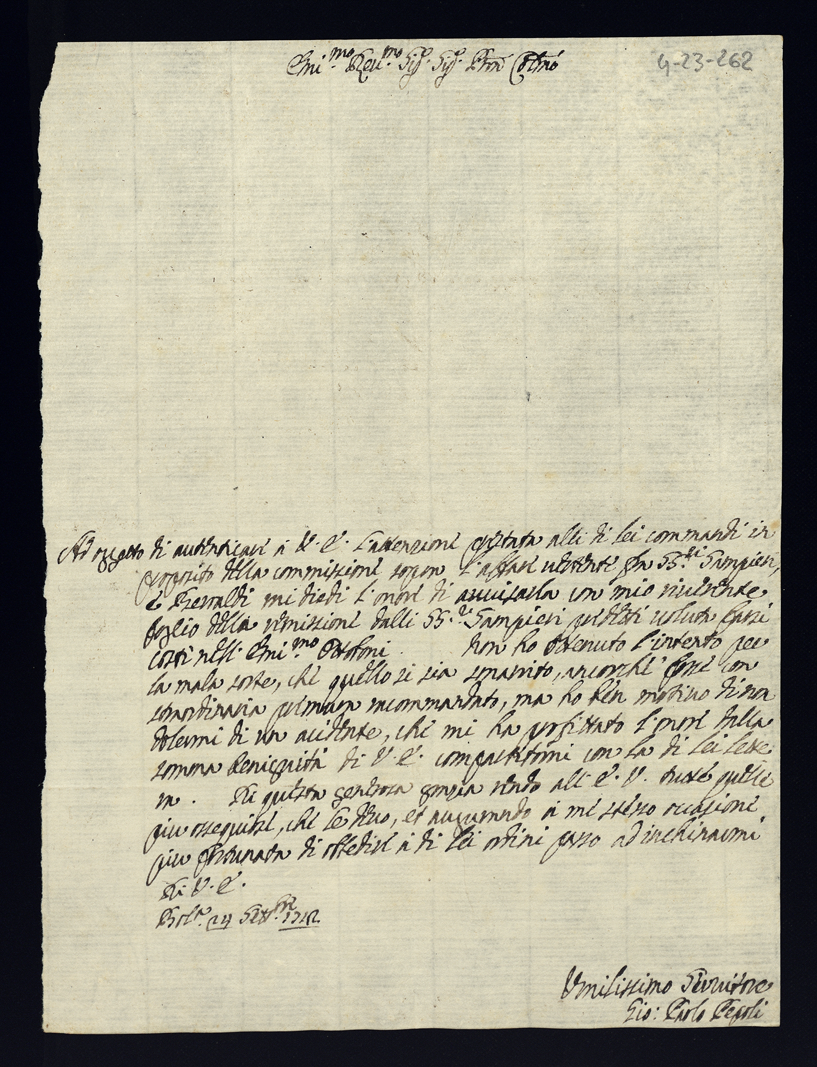 Emi.mo Reu.mo Sig.r Sig.r Prnē Colmō
4-23-262
Ad oggetto di autenticare à V. E. l'attenzione prestata alli di Lei commandi in
proposito della commissione sopra l'affare uertente fra SS.ri Sampieri,
e Beroaldi mi diedi l'onore di auuisarla con mio riuerente
foglio della remissione dalli SS.ri Sampieri predetti uoluta farsi
costì nell' Emi.mo Ottoboni. Non ho ottenuto l'intento per
la mala sorte, che quello si sia smarrito, ancorche fosse con
straordinaria premura raccommandato, ma ho ben motiuo di non
dolermi di un accidente, che mi ha profittato l'onore della
somma benignità di V. E. compartitomi con la di Lei lette
ra. Di questa generosa grazia rendo all' E. V. quelle
più ossequiose, che le deuo, et augurando à me stesso occasione
più fortunata di obbedire à di Lei ordini passo ad inchinarmi
Di V. E.
Bol.a 24 Sett.bre 1712
Vmilissimo Seruitore
Gio: Paolo Pepoli